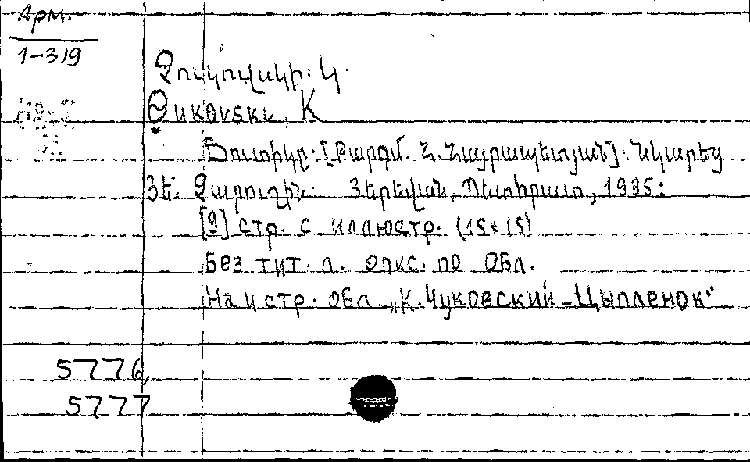 Арм.
1-319
Չուկովսկի. Կ.
Čukovski, K
Ճուտիկը: [Թարգմ. Հ. Հայրապետյան]. Նկարեց
Յե. Չարուշին. Յերեվան, Պետհրատ, 1935:
[9] стр. с иллюстр. (15×15)
Без тит. л. опис. по обл.
На 4 стр. обл. „К. Чуковский - Цыпленок"
5776
5777